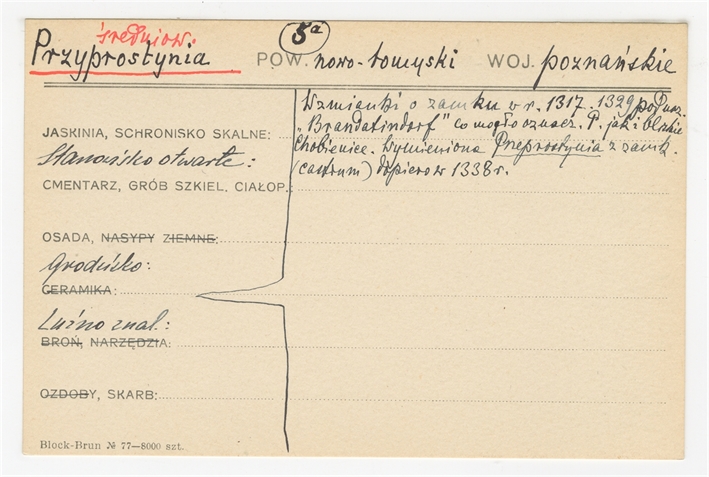 średniow.
5a
Przyprostynia POW. nowo-tomyski WOJ. poznańskie
Wzmianki o zamku w r. 1317. 1329 pod nazw.
JASKINIA, SCHRONISKO SKALNE: „Brandatindorf" co mogło oznacz. P. jak i bliskie
Stanowisko otwarte: Chobienice. Wymieniona Preprostynia z zamk.
CMENTARZ, GRÓB SZKIEL, CIAŁOP.: (castrum) dopiero w 1338 r.
OSADA, NASYPY ZIEMNE:
Grodzisko:
CERAMIKA:
Luźno znal.:
BROŃ, NARZĘDZIA:
OZDOBY, SKARB:
Block-Brun № 77—8000 szt.